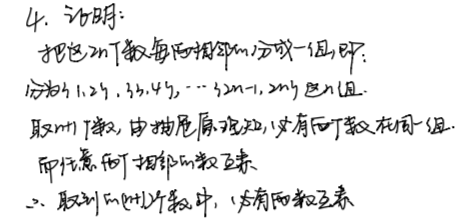 4. 证明:
把这2n个数每两相邻的分成一组,即:
分为{1,2},{3,4},…{2n-1,2n}这n组.
取n+1个数,由抽屉原理知,必有两个数在同一组.
而任意两个相邻的数互素
∴ 取到的(n+1)个数中,必有两数互素